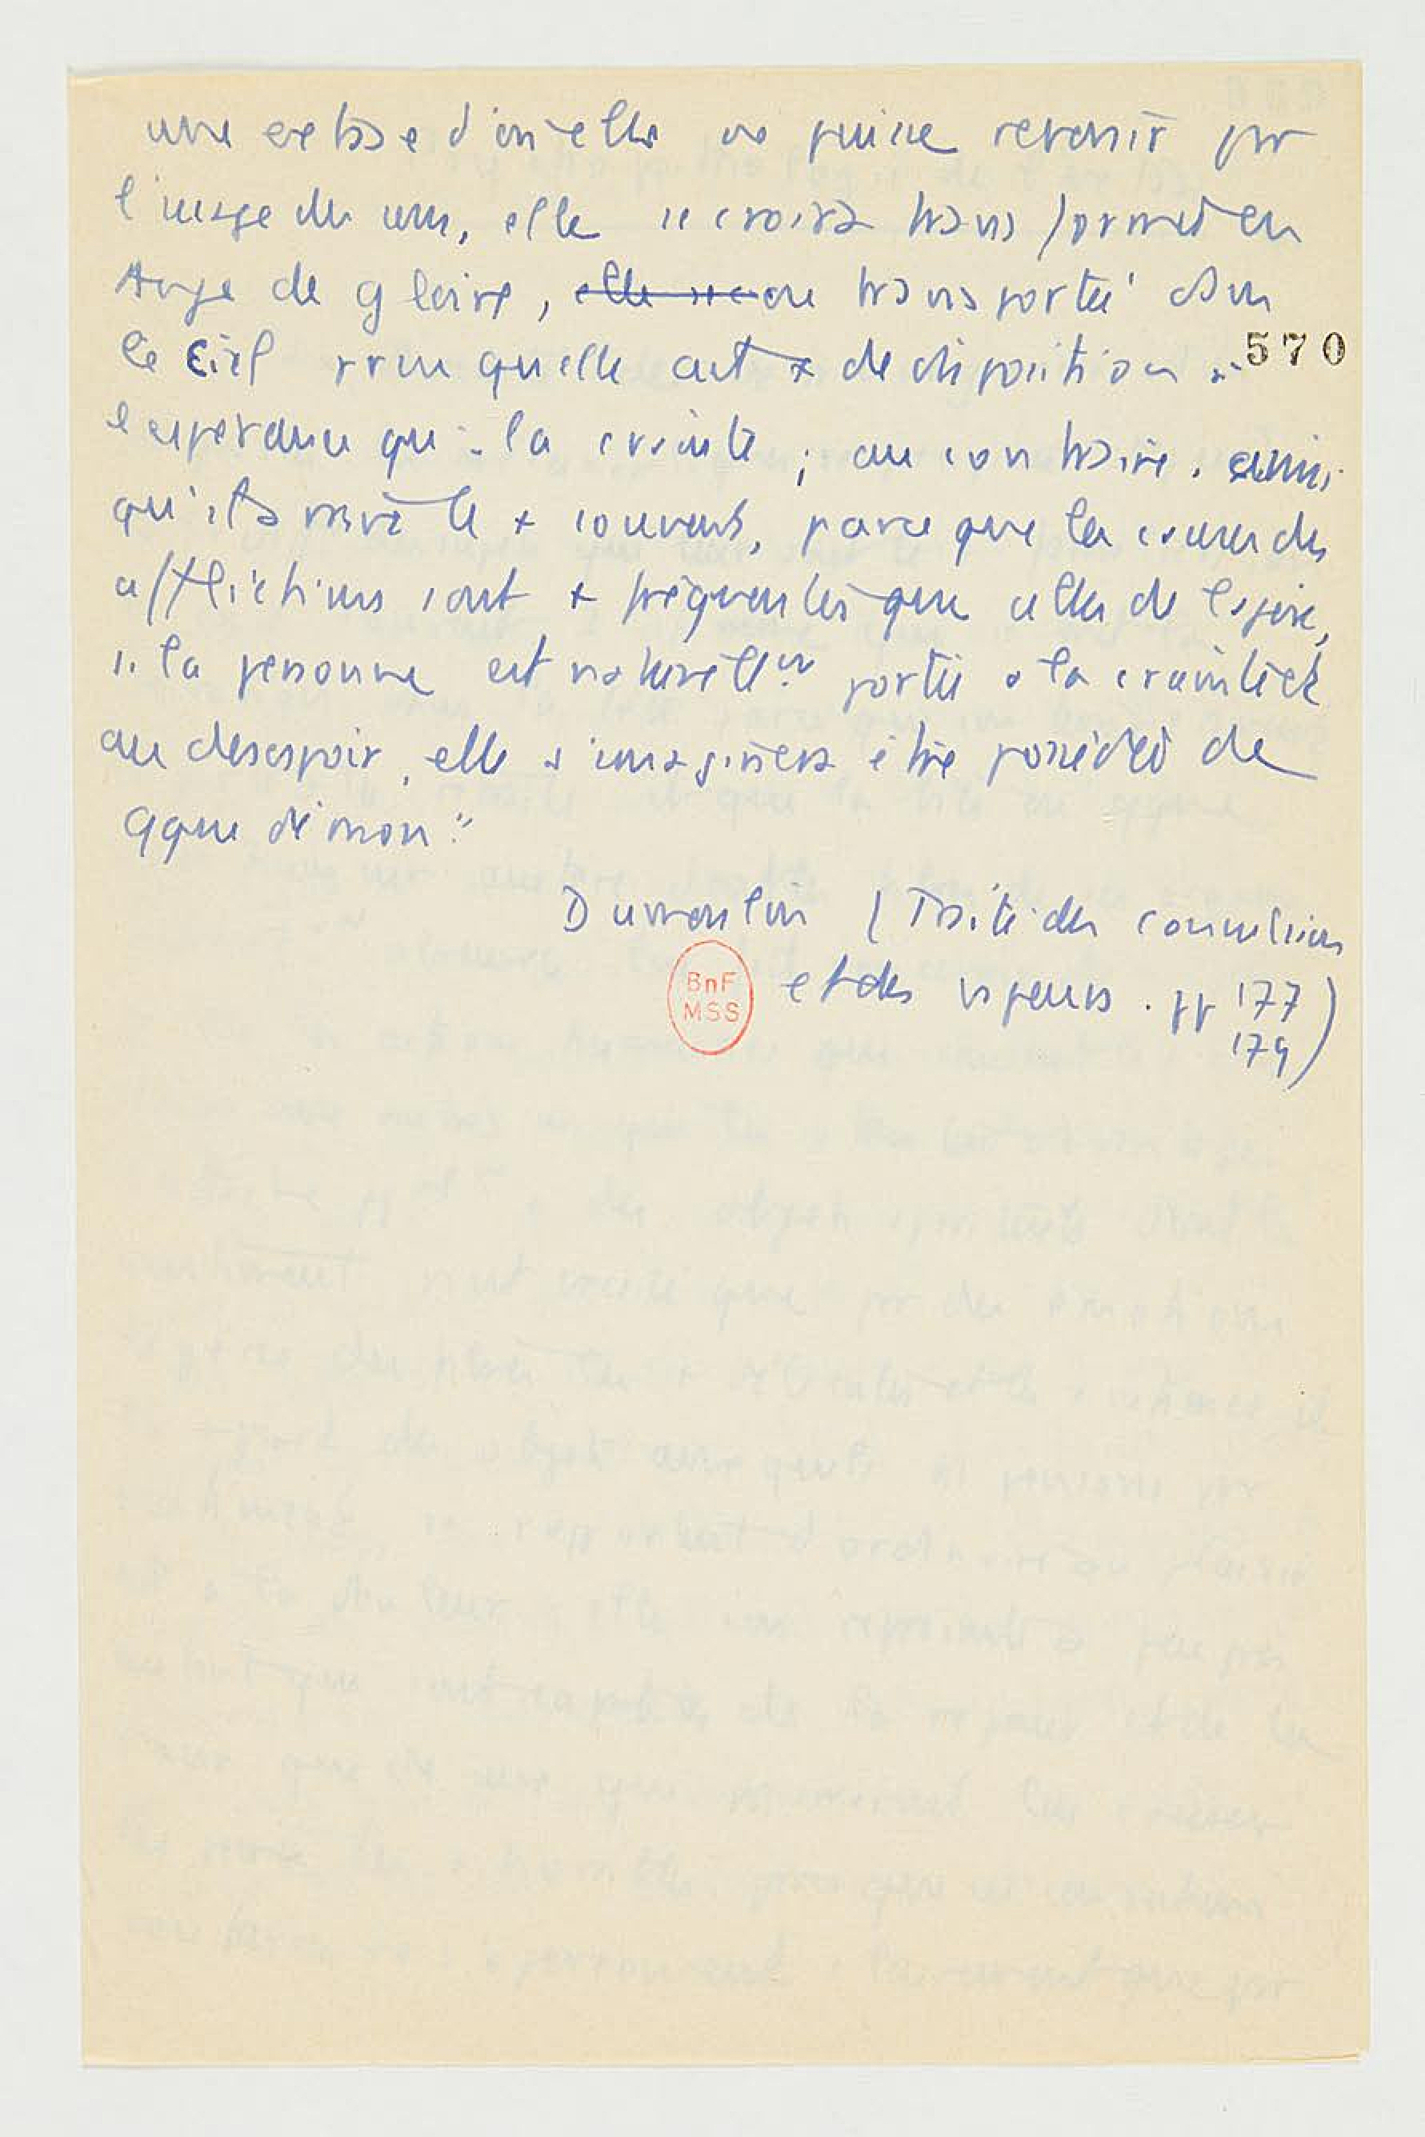 une extase d'où elle ne puisse revenir par
l'usage des sens, elle se croira transformée en
Ange de gloire, elle se ou transportée dans
le ciel pour qu'elle ait + de disposition à
570
l'esperance qu'à la crainte ; au contraire, ainsi
qu'il arrive le + souvent, parce que les causes des
afflictions sont + fréquentes que celles de l'espoir,
si la personne est naturellt portée à la crainte et
au desespoir, elle s'imaginera être possédée de
qque démon"
Dumoulin (Traité des convulsions
et des vapeurs. pp 177
179)
BnF
MSS